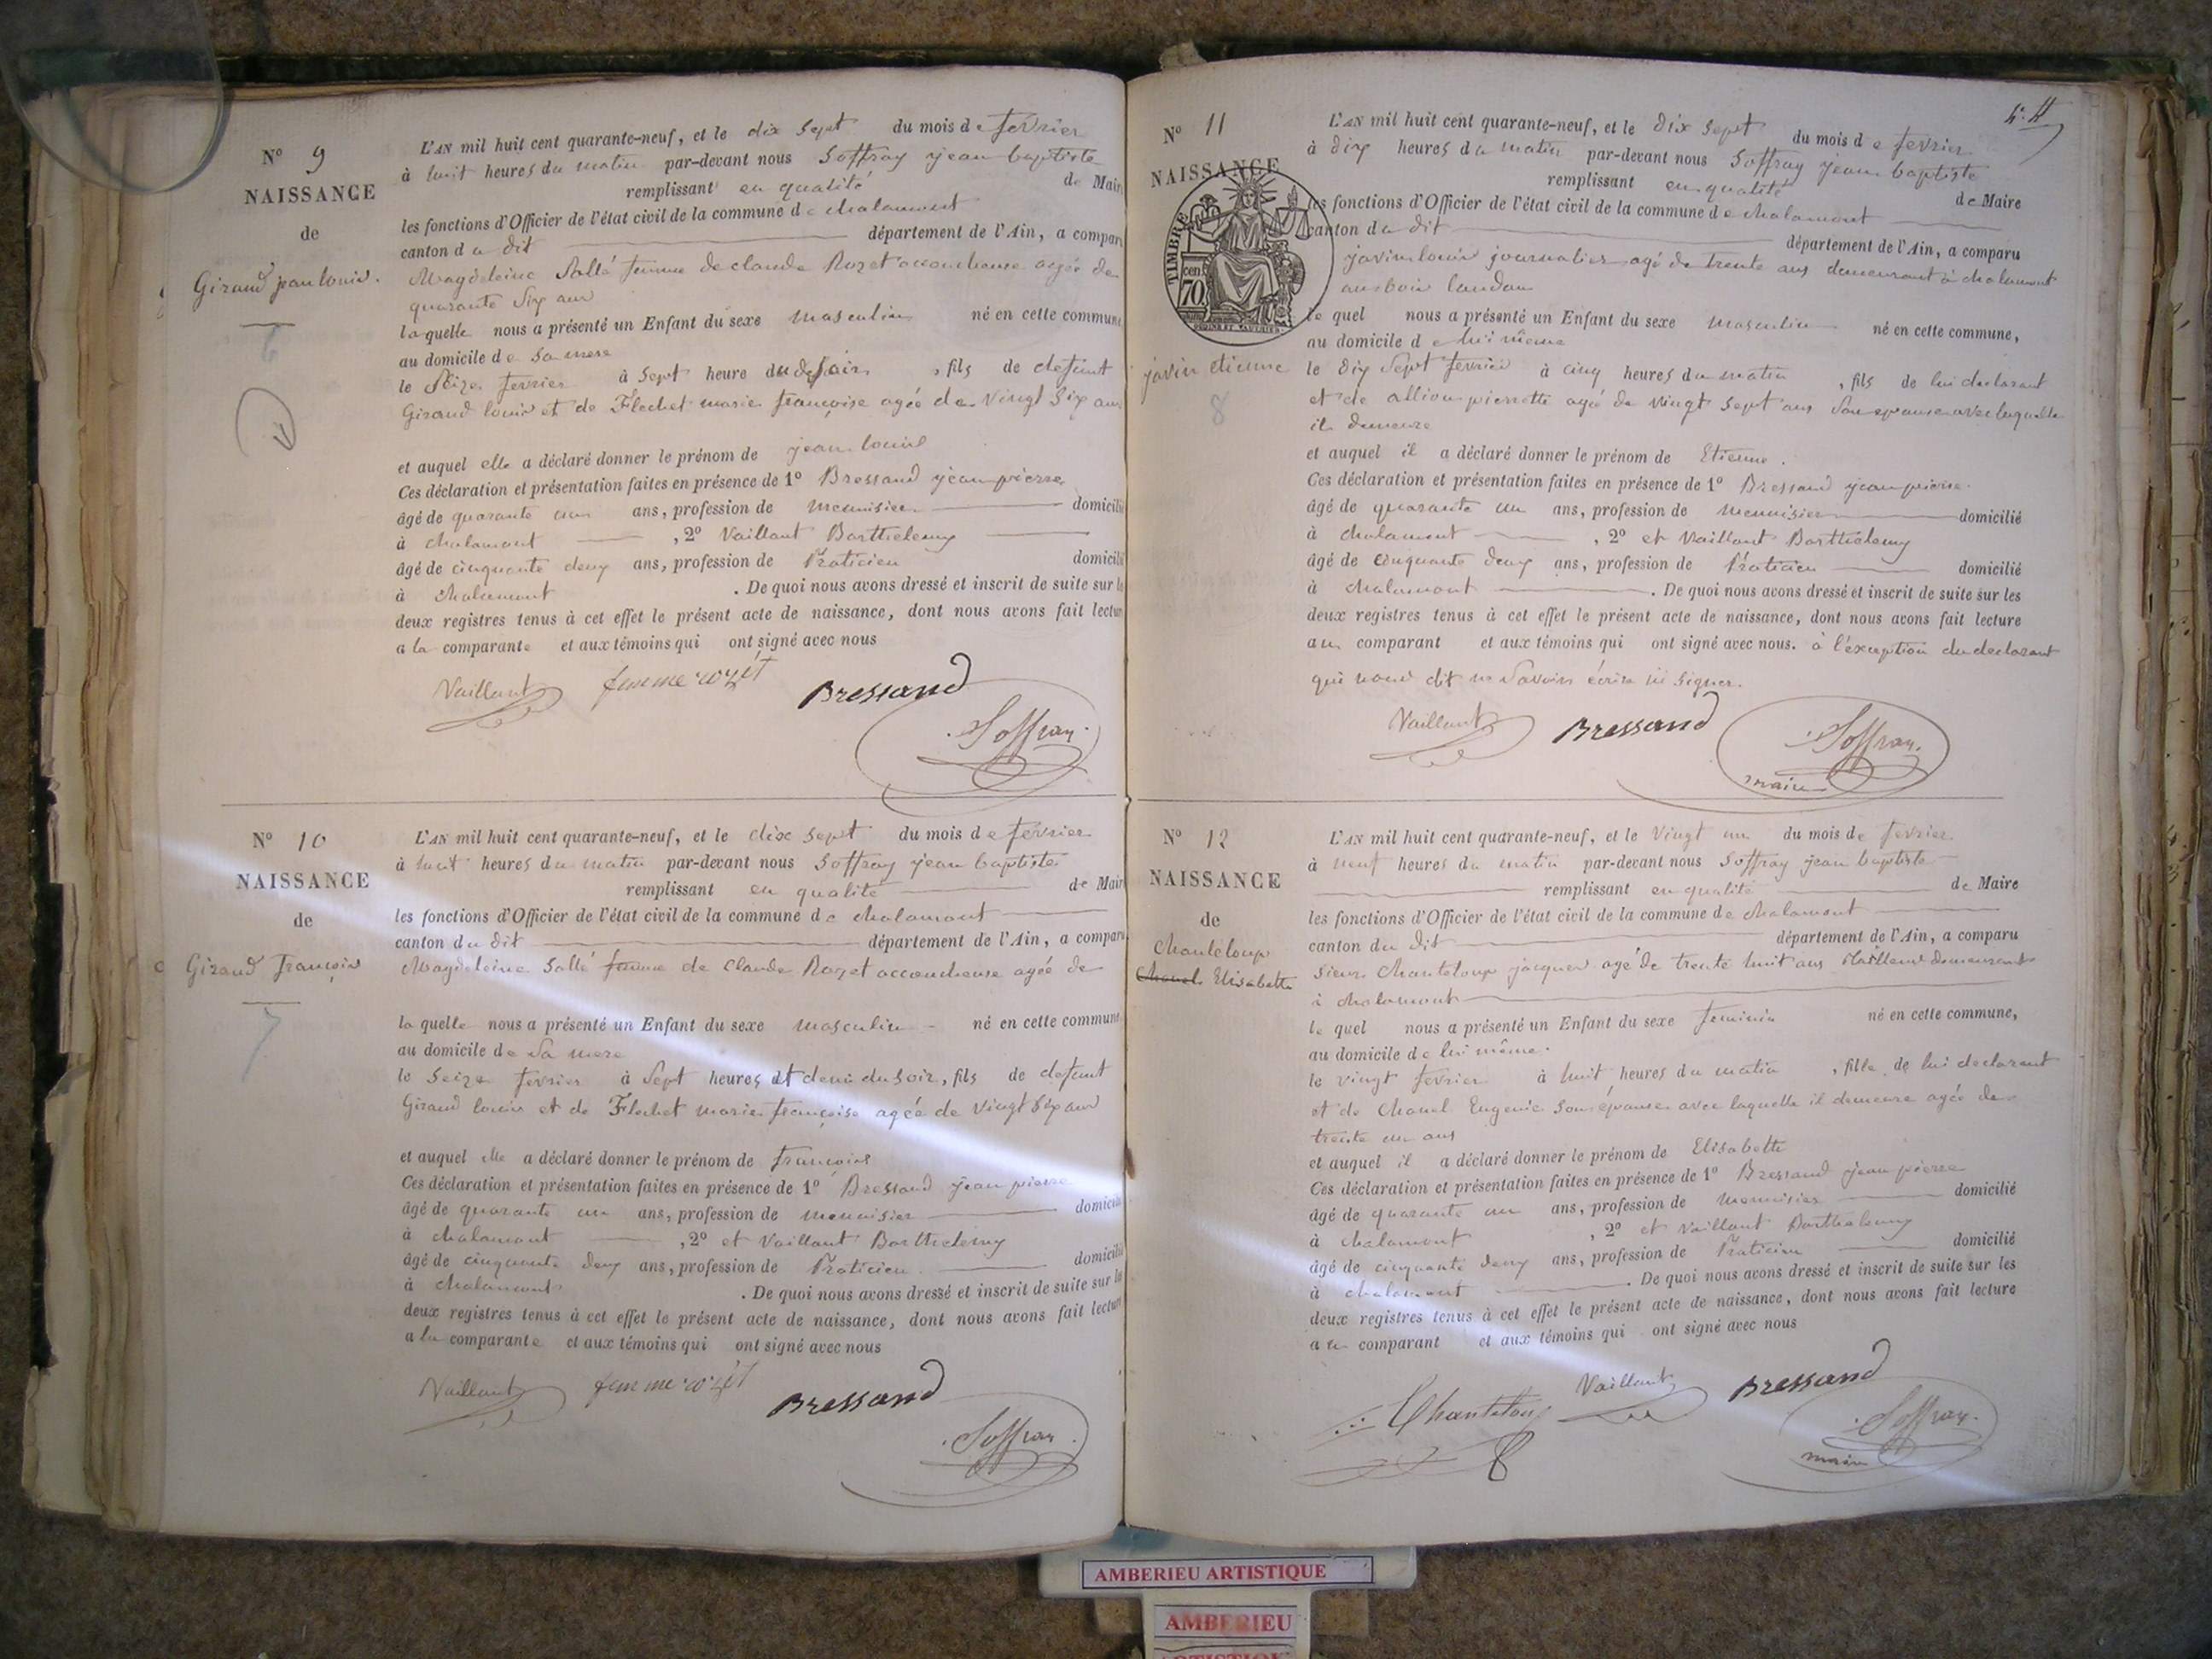 N° 9
NAISSANCE
de
Giraud jean louis.
L'AN mil huit cent quarante-neuf, et le dix Sept du mois de fevrier
à huit heures du matin par-devant nous Soffray jean baptiste
remplissant en qualité de Maire
les fonctions d'Officier de l'état civil de la commune de chalamont
canton du dit département de l'Ain, a compar
Magdeleine Sallé femme de claude Rozet accoucheuse agée de
quarante Six ans
laquelle nous a présenté un Enfant du sexe masculin né en cette commune
au domicile de Sa mere
le Seize fevrier à Sept heure du Soir, fils de defunt
Giraud louis et de Flechet marie françoise agée de Vingt Six ans
et auquel elle a déclaré donner le prénom de jean louis
Ces déclaration et présentation faites en présence de 1° Bressand jean pierre
âgé de quarante un ans, profession de menuisier domicilié
à chalamont, 2° Vaillant Barthelemy
âgé de cinquante deux ans, profession de Praticien domicilié
à chalamont. De quoi nous avons dressé et inscrit de suite sur le
deux registres tenus à cet effet le présent acte de naissance, dont nous avons fait lectur
a la comparante et aux témoins qui ont signé avec nous
Vaillant femme rozét Bressand
Soffray
N° 10
NAISSANCE
de
Giraud françois
7
L'AN mil huit cent quarante-neuf, et le dix Sept du mois de fevrier
à huit heures du matin par-devant nous Soffray jean baptiste
remplissant en qualité de Mair
les fonctions d'Officier de l'état civil de la commune de chalamont
canton du dit département de l'Ain, a compar
Magdeleine Sallé femme de Claude Rozet accoucheuse agée de
la quelle nous a présenté un Enfant du sexe masculin né en cette commune
au domicile de Sa mere
le Seize fevrier à Sept heures et demi du Soir, fils de defunt
Giraud louis et de Flechet marie françoise agée de Vingt Six ans
et auquel elle a déclaré donner le prénom de françois
Ces déclaration et présentation faites en présence de 1° Bressand jean pierre
âgé de quarante un ans, profession de menuisier domicilié
à chalamont, 2° et Vaillant Barthelemy
âgé de cinquante deux ans, profession de Praticien domicilié
à chalamont. De quoi nous avons dressé et inscrit de suite sur le
deux registres tenus à cet effet le présent acte de naissance, dont nous avons fait lectur
a la comparante et aux témoins qui ont signé avec nous
Vaillant femme rozét Bressand
Soffray
N° 11
NAISSANCE
TIMBRE
cen
70.
javin etienne
8
L'AN mil huit cent quarante-neuf, et le dix Sept du mois de fevrier
à dix heures du matin par-devant nous Soffray jean baptiste
remplissant en qualité de Maire
les fonctions d'Officier de l'état civil de la commune de chalamont
canton du dit département de l'Ain, a comparu
javin louis journalier agé de trente ans demeurant à chalamont
au bois landau
le quel nous a présenté un Enfant du sexe masculin né en cette commune,
au domicile de lui même
le dix Sept fevrier à cinq heures du matin, fils de lui declarant
et de allion pierrette agée de vingt Sept ans Son epouse avec laquelle
il demeure
et auquel il a déclaré donner le prénom de Etienne.
Ces déclaration et présentation faites en présence de 1° Bressand jean pierre.
âgé de quarante un ans, profession de menuisier domicilié
à chalamont, 2° et Vaillant Barthelemy
âgé de cinquante deux ans, profession de Praticien domicilié
à chalamont. De quoi nous avons dressé et inscrit de suite sur les
deux registres tenus à cet effet le présent acte de naissance, dont nous avons fait lecture
au comparant et aux témoins qui ont signé avec nous. à l'exception du declarant
qui nous dit ne Savoir écrire ni Signer.
Vaillant Bressand Soffray
maire
N° 12
NAISSANCE
de
Chanteloup
Chanel Elisabette
L'AN mil huit cent quarante-neuf, et le Vingt un du mois de fevrier
à neuf heures du matin par-devant nous Soffray jean baptiste
remplissant en qualité de Maire
les fonctions d'Officier de l'état civil de la commune de chalamont
canton du dit département de l'Ain, a comparu
Sieur Chanteloup jacques agé de trente huit ans tailleur demeurant
à chalamont
le quel nous a présenté un Enfant du sexe feminin né en cette commune,
au domicile de lui même.
le vingt fevrier à huit heures du matin, fille de lui declarant
et de Chanel Eugenie Son épouse avec laquelle il demeure agée de
trente un ans
et auquel il a déclaré donner le prénom de Elisabette
Ces déclaration et présentation faites en présence de 1° Bressand jean pierre
âgé de quarante un ans, profession de menuisier domicilié
à chalamont, 2° et Vaillant Barthelemy
âgé de cinquante deux ans, profession de Praticien domicilié
à chalamont. De quoi nous avons dressé et inscrit de suite sur les
deux registres tenus à cet effet le présent acte de naissance, dont nous avons fait lecture
au comparant et aux témoins qui ont signé avec nous
Chanteloup Vaillant Bressand
Soffray
maire
AMBERIEU ARTISTIQUE
AMBERIEU